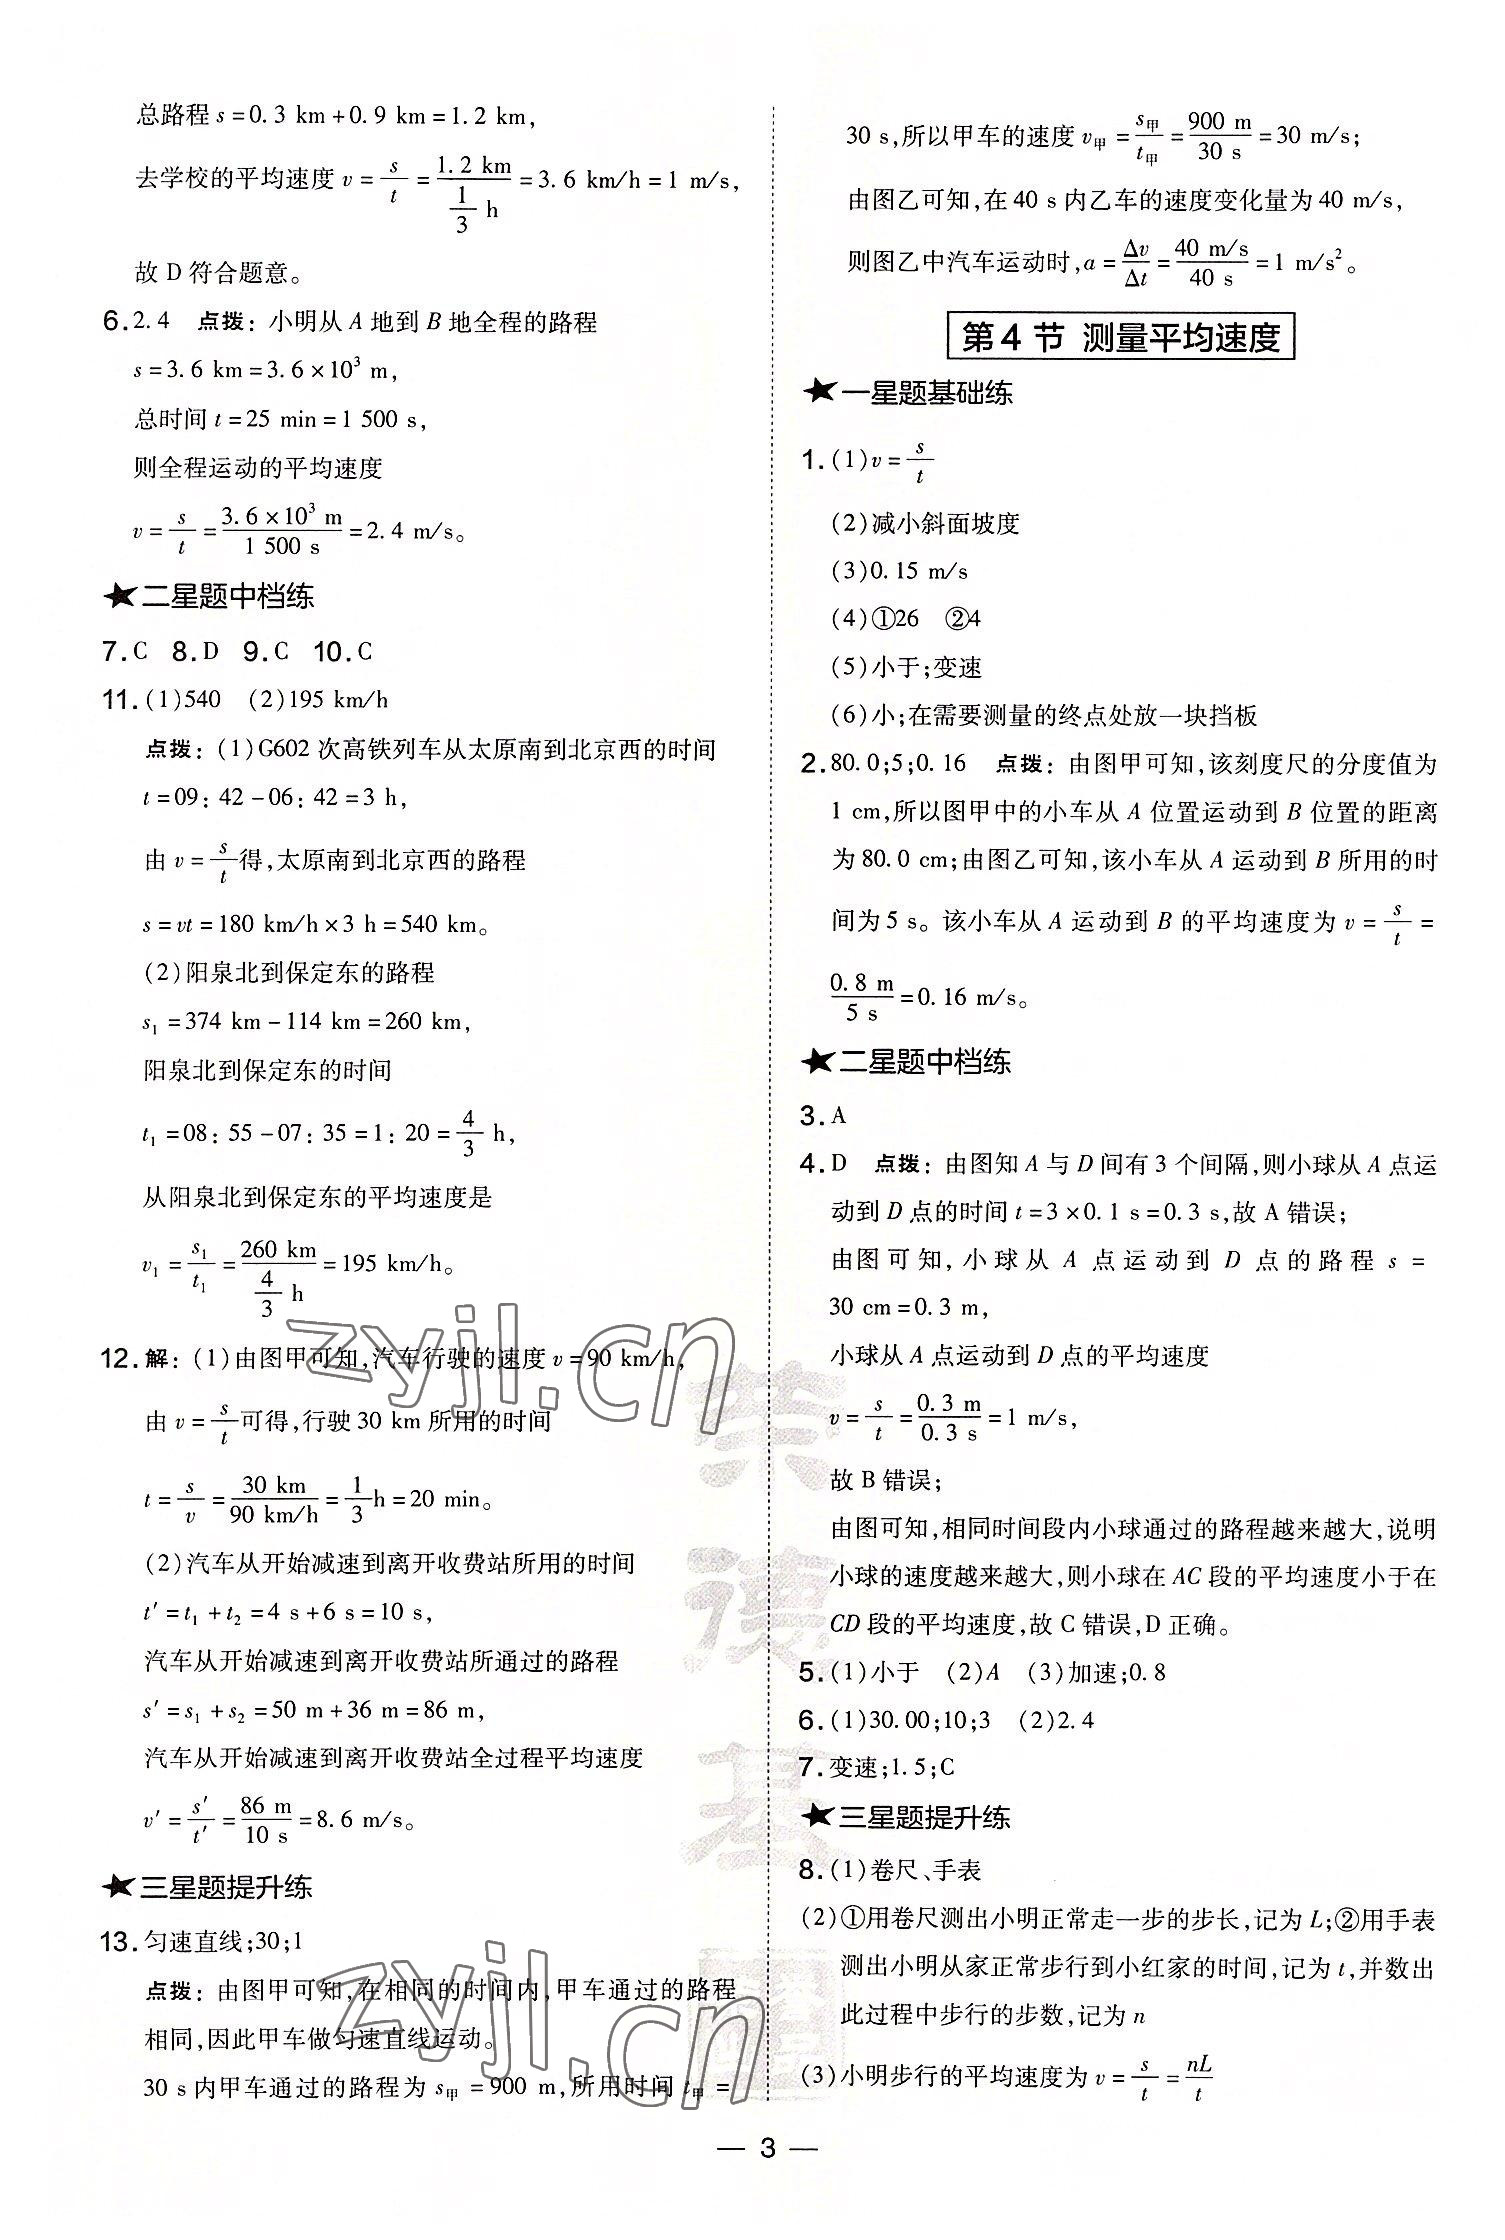 总路程 s=0.3 km+0.9 km=1.2 km,
去学校的平均速度 v=s/t=1.2 km/(1/3 h)=3.6 km/h=1 m/s,
故 D 符合题意。
6. 2.4 点拨：小明从 A 地到 B 地全程的路程
s=3.6 km=3.6×10³ m,
总时间 t=25 min=1 500 s,
则全程运动的平均速度
v=s/t=3.6×10³ m/1 500 s=2.4 m/s。
★二星题中档练
7. C 8. D 9. C 10. C
11. (1)540 (2)195 km/h
点拨：(1)G602 次高铁列车从太原南到北京西的时间
t=09：42-06：42=3 h,
由 v=s/t得,太原南到北京西的路程
s=vt=180 km/h×3 h=540 km。
(2)阳泉北到保定东的路程
s₁=374 km-114 km=260 km,
阳泉北到保定东的时间
t₁=08：55-07：35=1：20=4/3 h,
从阳泉北到保定东的平均速度是
v₁=s₁/t₁=260 km/(4/3 h)=195 km/h。
12. 解：(1)由图甲可知,汽车行驶的速度 v=90 km/h,
由 v=s/t可得,行驶 30 km 所用的时间
t=s/v=30 km/90 km/h=1/3 h=20 min。
(2)汽车从开始减速到离开收费站所用的时间
t′=t₁+t₂=4 s+6 s=10 s,
汽车从开始减速到离开收费站所通过的路程
s′=s₁+s₂=50 m+36 m=86 m,
汽车从开始减速到离开收费站全过程平均速度
v′=s′/t′=86 m/10 s=8.6 m/s。
★三星题提升练
13. 匀速直线;30;1
点拨：由图甲可知,在相同的时间内,甲车通过的路程
相同,因此甲车做匀速直线运动。
30 s 内甲车通过的路程为 s甲=900 m,所用时间 t甲=
30 s,所以甲车的速度 v甲=s甲/t甲=900 m/30 s=30 m/s;
由图乙可知,在 40 s 内乙车的速度变化量为 40 m/s,
则图乙中汽车运动时,a=Δv/Δt=40 m/s/40 s=1 m/s²。
第 4 节 测量平均速度
★一星题基础练
1. (1)v=s/t
(2)减小斜面坡度
(3)0.15 m/s
(4)①26 ②4
(5)小于;变速
(6)小;在需要测量的终点处放一块挡板
2. 80.0;5;0.16 点拨：由图甲可知,该刻度尺的分度值为
1 cm,所以图甲中的小车从 A 位置运动到 B 位置的距离
为 80.0 cm;由图乙可知,该小车从 A 运动到 B 所用的时
间为 5 s。该小车从 A 运动到 B 的平均速度为 v=s/t=
0.8 m/5 s=0.16 m/s。
★二星题中档练
3. A
4. D 点拨：由图知 A 与 D 间有 3 个间隔,则小球从 A 点运
动到 D 点的时间 t=3×0.1 s=0.3 s,故 A 错误;
由图可知,小球从 A 点运动到 D 点的路程 s=
30 cm=0.3 m,
小球从 A 点运动到 D 点的平均速度
v=s/t=0.3 m/0.3 s=1 m/s,
故 B 错误;
由图可知,相同时间段内小球通过的路程越来越大,说明
小球的速度越来越大,则小球在 AC 段的平均速度小于在
CD 段的平均速度,故 C 错误,D 正确。
5. (1)小于 (2)A (3)加速;0.8
6. (1)30.00;10;3 (2)2.4
7. 变速;1.5;C
★三星题提升练
8. (1)卷尺、手表
(2)①用卷尺测出小明正常走一步的步长,记为 L;②用手表
测出小明从家正常步行到小红家的时间,记为 t,并数出
此过程中步行的步数,记为 n
(3)小明步行的平均速度为 v=s/t=nL/t
— 3 —
zyjl.cn
zyjl.cn